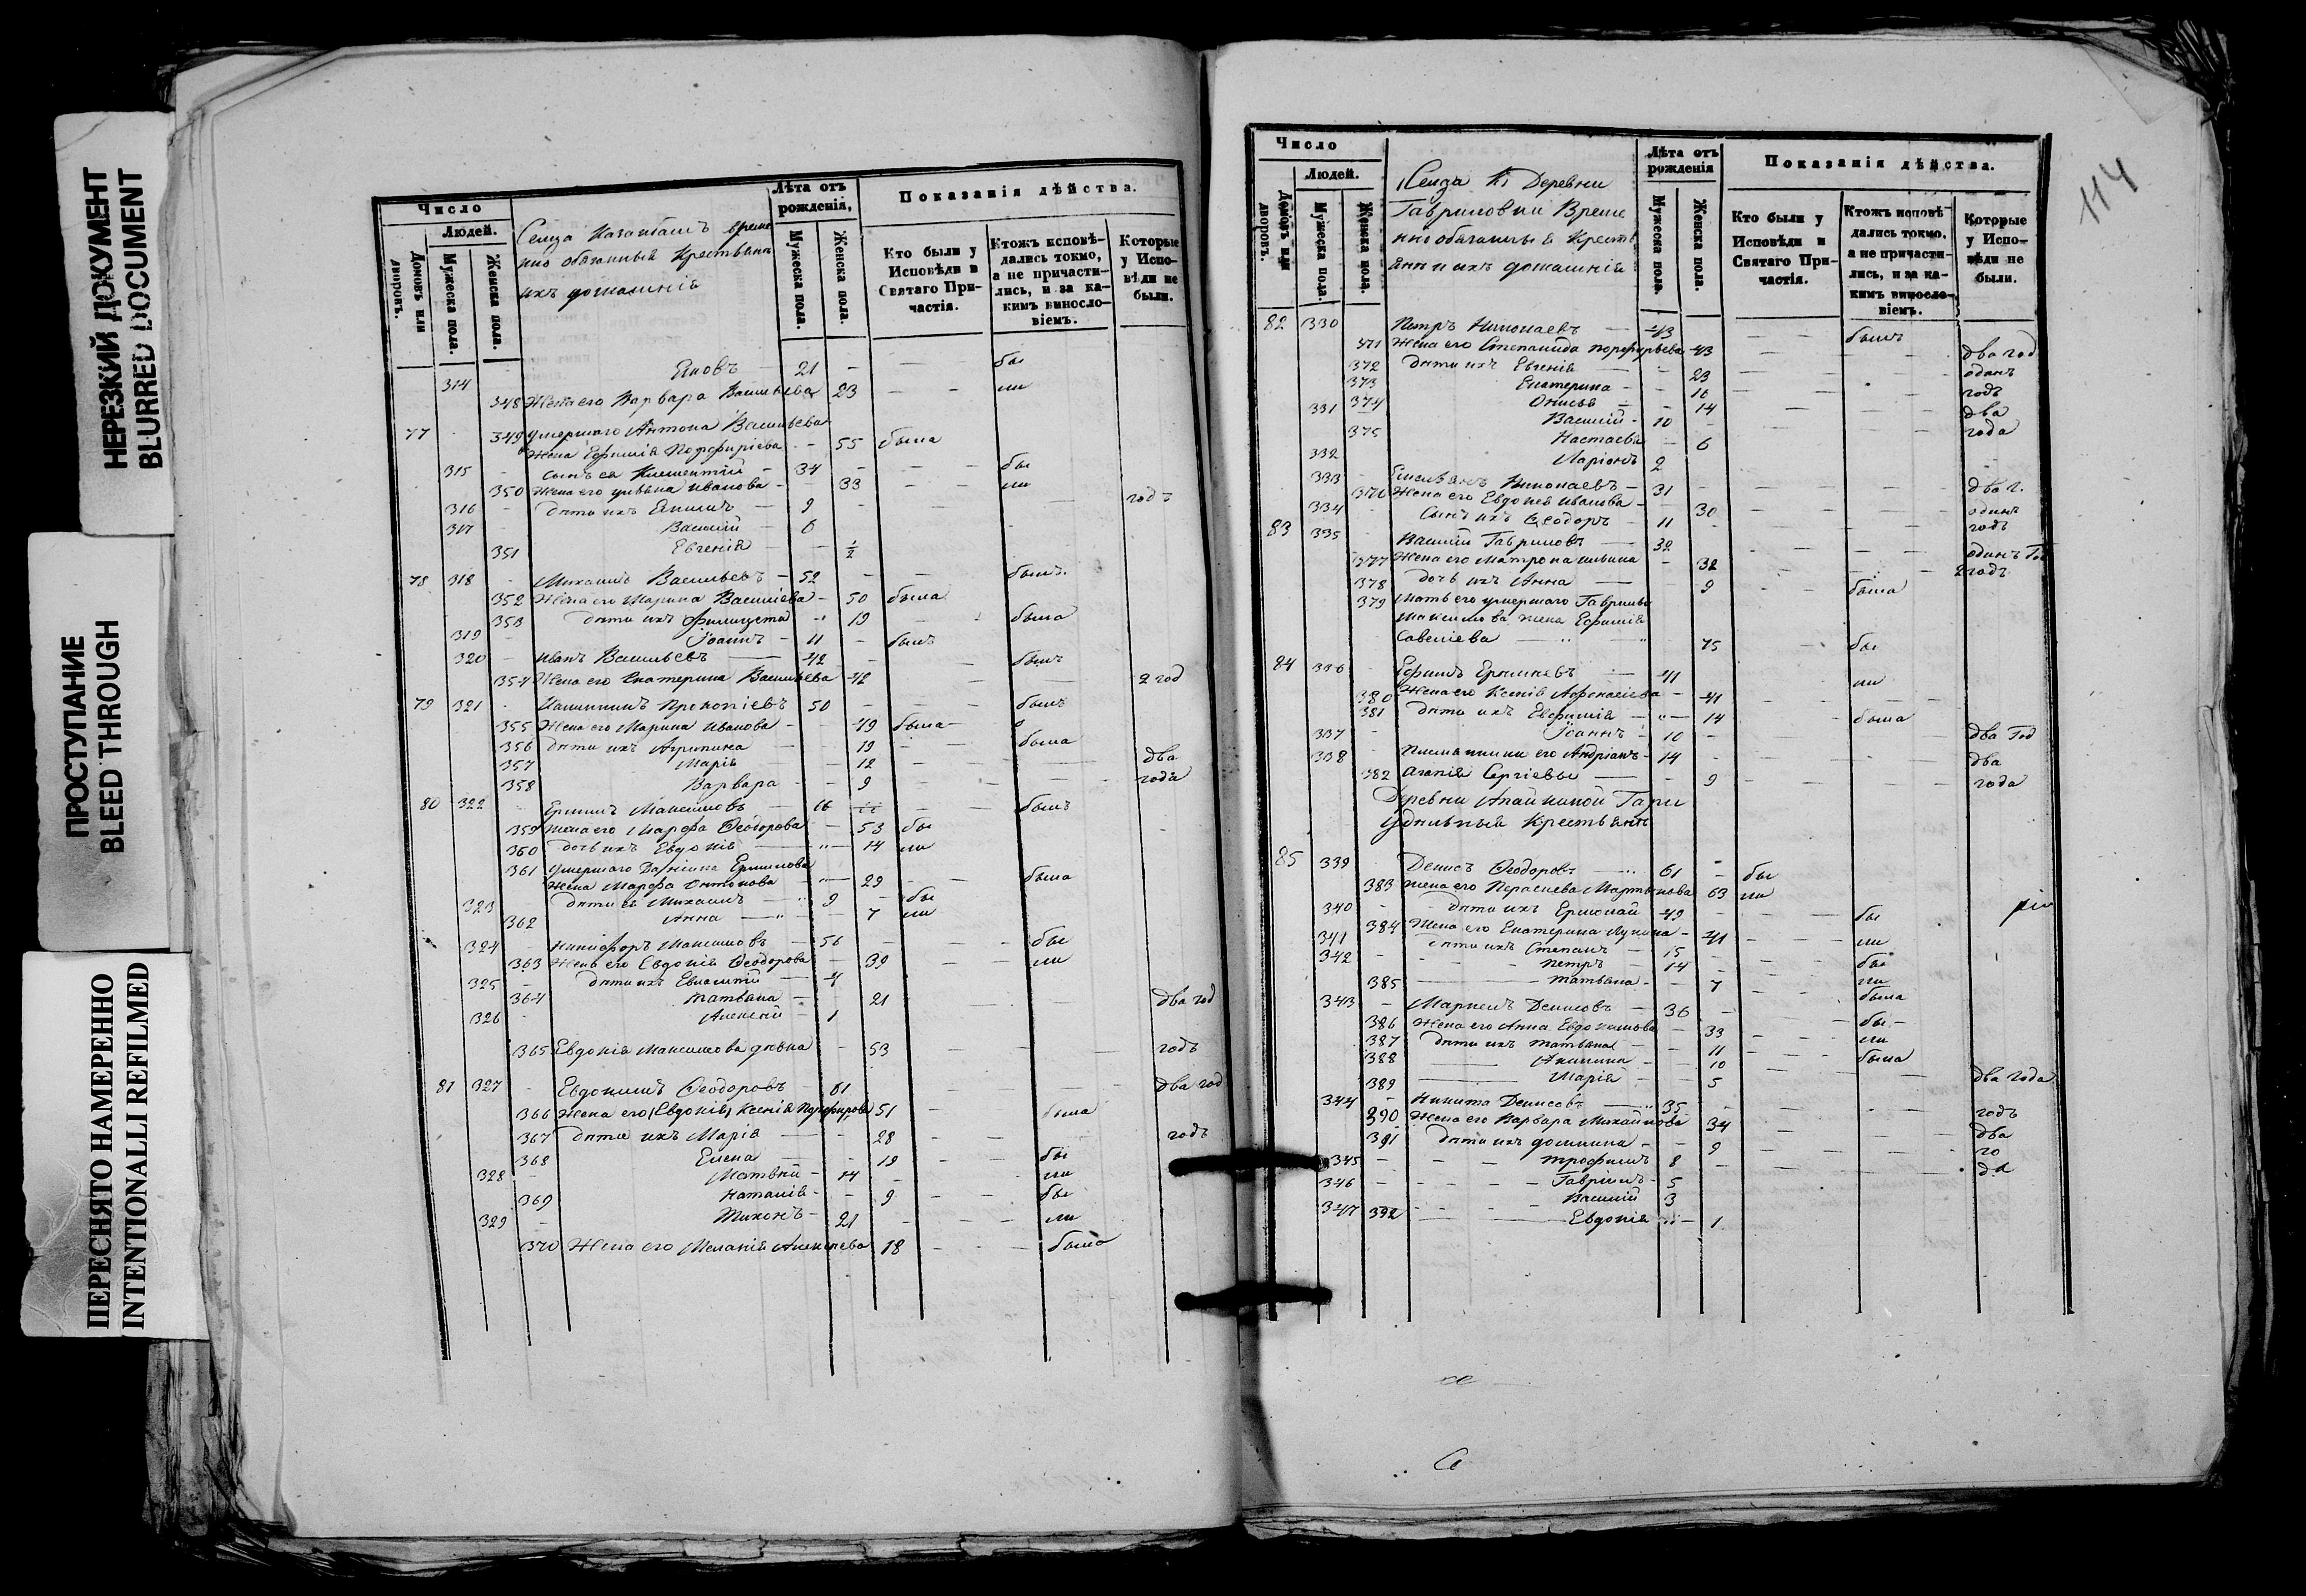 НЕРЕЗКИЙ ДОКУМЕНТ
BLURRED DOCUMENT
ПРОСТУПАНИЕ
BLEED THROUGH
ПЕРЕСНЯТО НАМЕРЕННО
INTENTIONALLI REFILMED
Число
Людей.
Домовъ или дворовъ.
Мужеска пола.
Женска пола.
Лѣта отъ рожденія,
Мужеска пола.
Женска пола.
Показанія дѣйства.
Кто были у Исповѣди и Святаго Причастія.
Ктожъ исповѣдались токмо, а не причастились, и за какимъ винословіемъ.
Которые у Исповѣди не были.
крестьяне
ихъ домашнія
314 Яковъ 21 бы
348 Жена его Варвара Васильева 23 ли
77 349 умершаго Антона Васильева
Жена Ефимія Порфиріева 55 была
315 сынъ ея Климентій 34 бы
350 Жена его Ульяна Иванова 33 ли
316 дѣти ихъ 9 годъ
317 Василій 6
351 Евгенія 1/2
78 318 Михаилъ Васильевъ 52 былъ
352 Жена его Марина Василіева 50 была
353 дѣти ихъ Филицата 19 была
319 Іоаннъ 11 былъ
320 Иванъ Васильевъ 42 былъ
354 Жена его Екатерина Васильева 42 2 год
79 321 Прокопіевъ 50 былъ
355 Жена его Марина Иванова 49 была
356 дѣти ихъ Агрипина 19 была
357 Марія 12 два
358 Варвара 9 года
80 322 Ермилъ Максимовъ 66 былъ
359 жена его Марфа Ѳеодорова 53 бы
360 дочь ихъ Евдокія 14 ли
361 умершаго Ермилова
жена Марфа Антонова 29 была
323 дѣти ея Михаилъ 9 бы
362 Анна 7 ли
324 Никифоръ Максимовъ 56 бы
363 Жена его Евдокія Ѳеодорова 39 ли
325 дѣти ихъ 4
364 Татьяна 21 два год
326 Алексей 1
365 Евдокія Максимова дѣвка 53 годъ
81 327 Евдокимъ Ѳеодоровъ 61 два год
366 Жена его (Евдокія) Ксенія Порфирова 51 была
367 дѣти ихъ Марія 28 годъ
368 Елена 19 бы
328 Матвѣй 14 ли
369 Наталія 9 бы
329 Тихонъ 21 ли
370 Жена его Меланія Алексѣева 18 была
114
Число
Людей.
Домовъ или дворовъ.
Мужеска пола.
Женска пола.
Деревни
Гавриловки Време
нно обязанныя Кресть
яне и ихъ домашнія
Лѣта отъ рожденія
Мужеска пола.
Женска пола.
Показанія дѣйства.
Кто были у Исповѣди и Святаго Причастія.
Ктожъ исповѣдались токмо, а не причастились, и за какимъ винословіемъ.
Которые у Исповѣди не были.
82 330 Петръ Николаевъ 43 былъ
371 Жена его Степанида Порфирьева 43 два год
372 дѣти ихъ Евгенія 23 одинъ
373 Екатерина 16 годъ
374 Онисья 14 два
331 Василій 10 года
375 Настасья 6
332 Ларіонъ 2
333 Емельянъ Николаевъ 31 два г.
376 Жена его Евдокія Иванова 30 одинъ
334 Сынъ ихъ Ѳеодоръ 11 годъ
83 335 Василій Гавриловъ 32 одинъ Го
377 Жена его Матрона Ильина 32 2 годъ
378 дочь ихъ Анна 9 была
379 Мать его умершаго Гаврилы
Максимова жена Ефимія
Савеліева 75 бы
84 336 Ефимъ Ермиловъ 41 ли
380 Жена его Ксенія Афонасіева 41
381 дѣти ихъ Евфимія 14 была
337 Іоаннъ 10 два Год
338 Племянники его Андріанъ 14 два
382 Агапія Сергіевы 9 года
Деревни Гари
Удѣльныя Крестьяне
85 339 Денисъ Ѳеодоровъ 61 бы
383 жена его Параскева Мартынова 63 ли
340 дѣти ихъ Ермолай 49 бы
384 Жена его Екатерина Лукина 41 ли
341 дѣти ихъ Степанъ 15 бы
342 Петръ 14 ли
385 Татьяна 7 была
343 Маркелъ Денисовъ 36 бы
386 Жена его Анна Евдокимова 33 ли
387 дѣти ихъ Татьяна 11 была
388 Акилина 10
389 Марія 5 два года
344 Никита Денисовъ 35 годъ
390 Жена его Варвара Михайлова 34 два
391 дѣти ихъ Домнина 9 го
345 Трофимъ 8 да
346 Гавріилъ 5
347 Василій 3
392 Евдокія 1